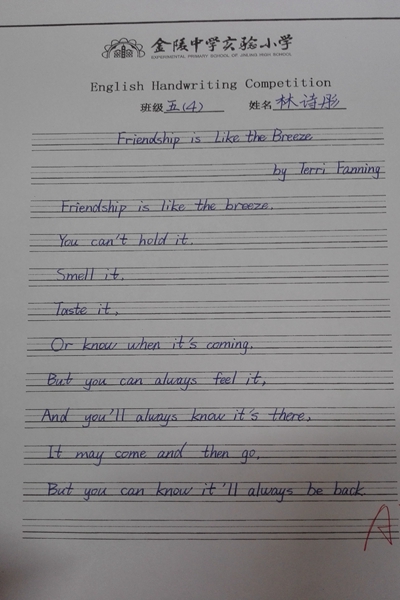 金陵中学实验小学
EXPERIMENTAL PRIMARY SCHOOL OF JINLING HIGH SCHOOL
English Handwriting Competition
班级 五(4) 姓名 林诗彤
Friendship is Like the Breeze
by Terri Fanning
Friendship is like the breeze.
You can't hold it.
Smell it,
Taste it,
Or know when it's coming.
But you can always feel it,
And you'll always know it's there,
It may come and then go,
But you can know it'll always be back.
A